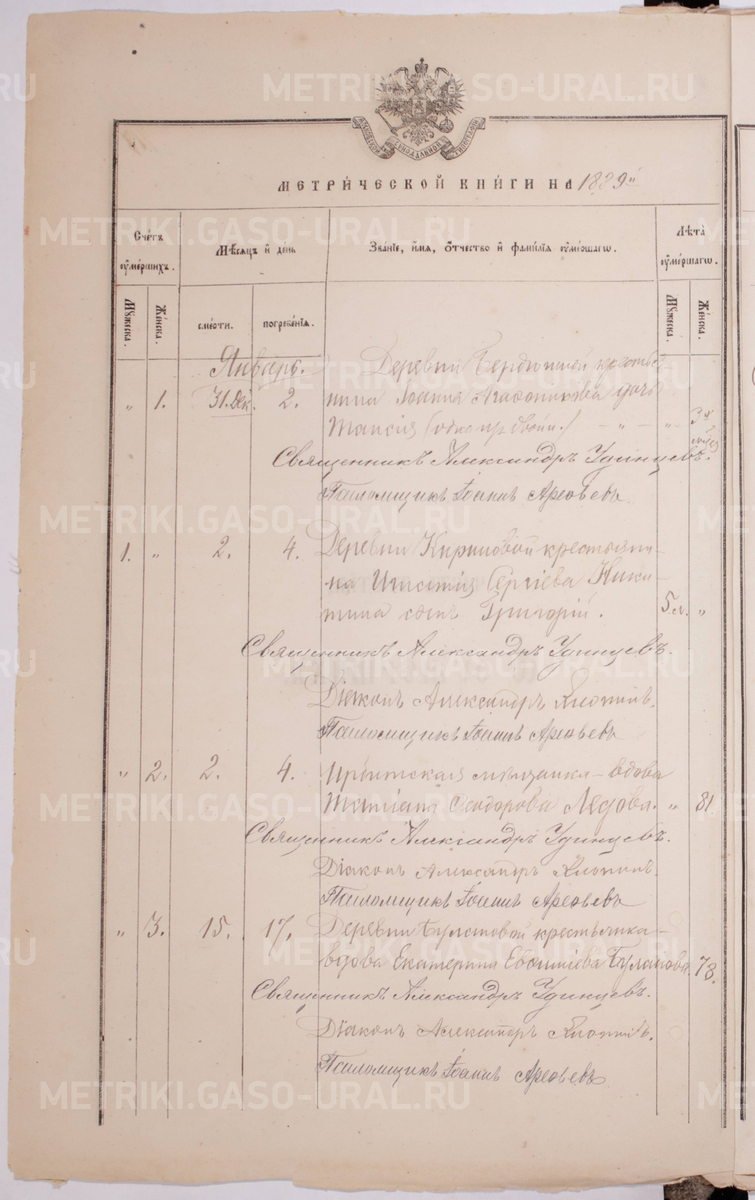 METRIKI.GASO-URAL.RU
МЕТРИЧЕСКОЙ КНИГИ НА 1889й
Счетъ умершихъ.
Мѣсяцъ и день
Званіе, имя, отчество и фамилія умершаго.
Лѣта умершаго.
Мужеска. Женска. смерти. погребенія. Мужеска. Женска.
Январь. Деревни крестья-
„ 1. 31. Дек. 2. нина Іоанна дочь
Таисія „
Священникъ Александръ Удинцевъ.
Псаломщикъ Іоаннъ Арефьевъ
1. „ 2. 4. Деревни Кириловой крестьяни-
на Игнатія Сергіева Ники-
тина сынъ Григорій. 5 л. „
Священникъ Александръ Удинцевъ.
Діаконъ Александръ
Псаломщикъ Іоаннъ Арефьевъ
„ 2. 2. 4. Ирбитская мѣщанка - вдова
Татіана Ѳеодорова Лѣдова. „ 81
Священникъ Александръ Удинцевъ.
Діаконъ Александръ
Псаломщикъ Іоаннъ Арефьевъ
„ 3. 15. 17. Деревни крестьянка -
вдова Екатерина Буланова 73.
Священникъ Александръ Удинцевъ.
Діаконъ Александръ
Псаломщикъ Іоаннъ Арефьевъ